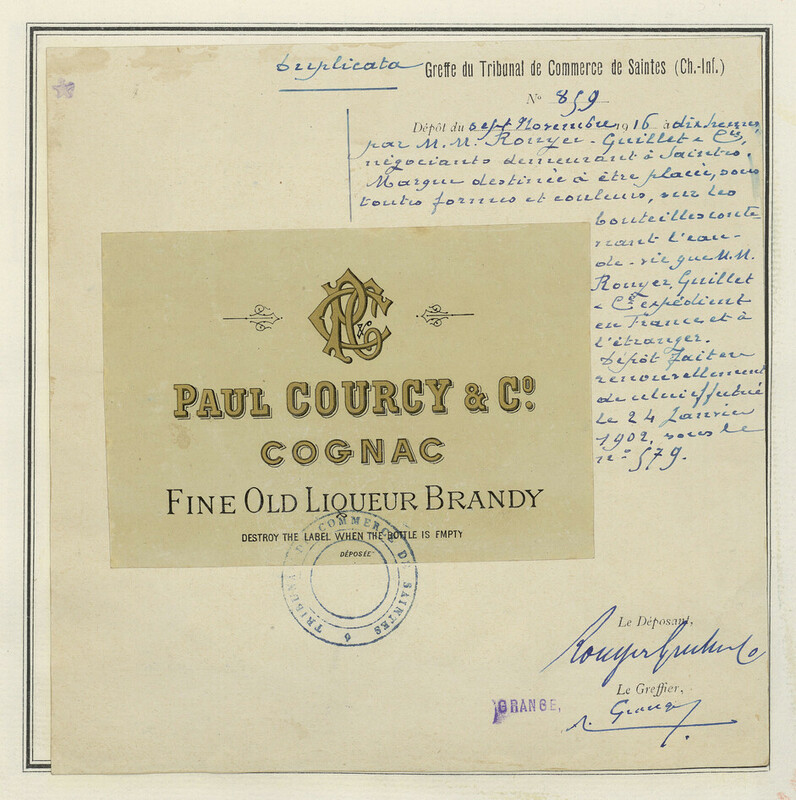 Duplicata Greffe du Tribunal de Commerce de Saintes (Ch.-Inf.)
N° 859
Dépôt du sept Novembre 1916 à dix heures
par M.M. Rouyer-Guillet & Cie,
négociants demeurant à Saintes.
Marque destinée à être placée, sous
toutes formes et couleurs, sur les
bouteilles conte-
nant l'eau-
de-vie que M.M.
Rouyer, Guillet
& Cie expédient
en France et à
l'étranger.
Dépôt fait en
renouvellement
de celui effectué
le 24 Janvier
1902, sous le
n° 579.
PAUL COURCY & Cº.
COGNAC
FINE OLD LIQUEUR BRANDY
DESTROY THE LABEL WHEN THE BOTTLE IS EMPTY
DÉPOSÉE
TRIBUNAL DE COMMERCE DE SAINTES
Le Déposant,
Rouyer Guillet & Co
Le Greffier,
GRANGE,
Grange